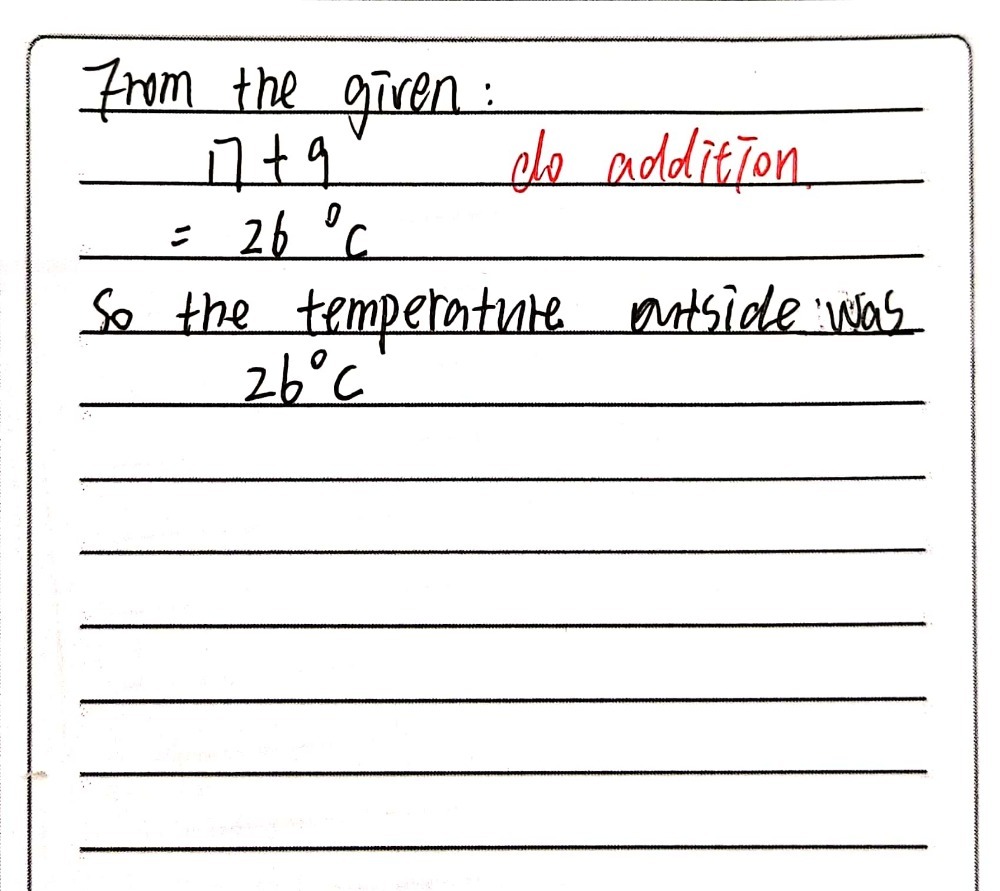 From the given:
17 + 9 do addition.
= 26 °C
So the temperature outside was
26°C